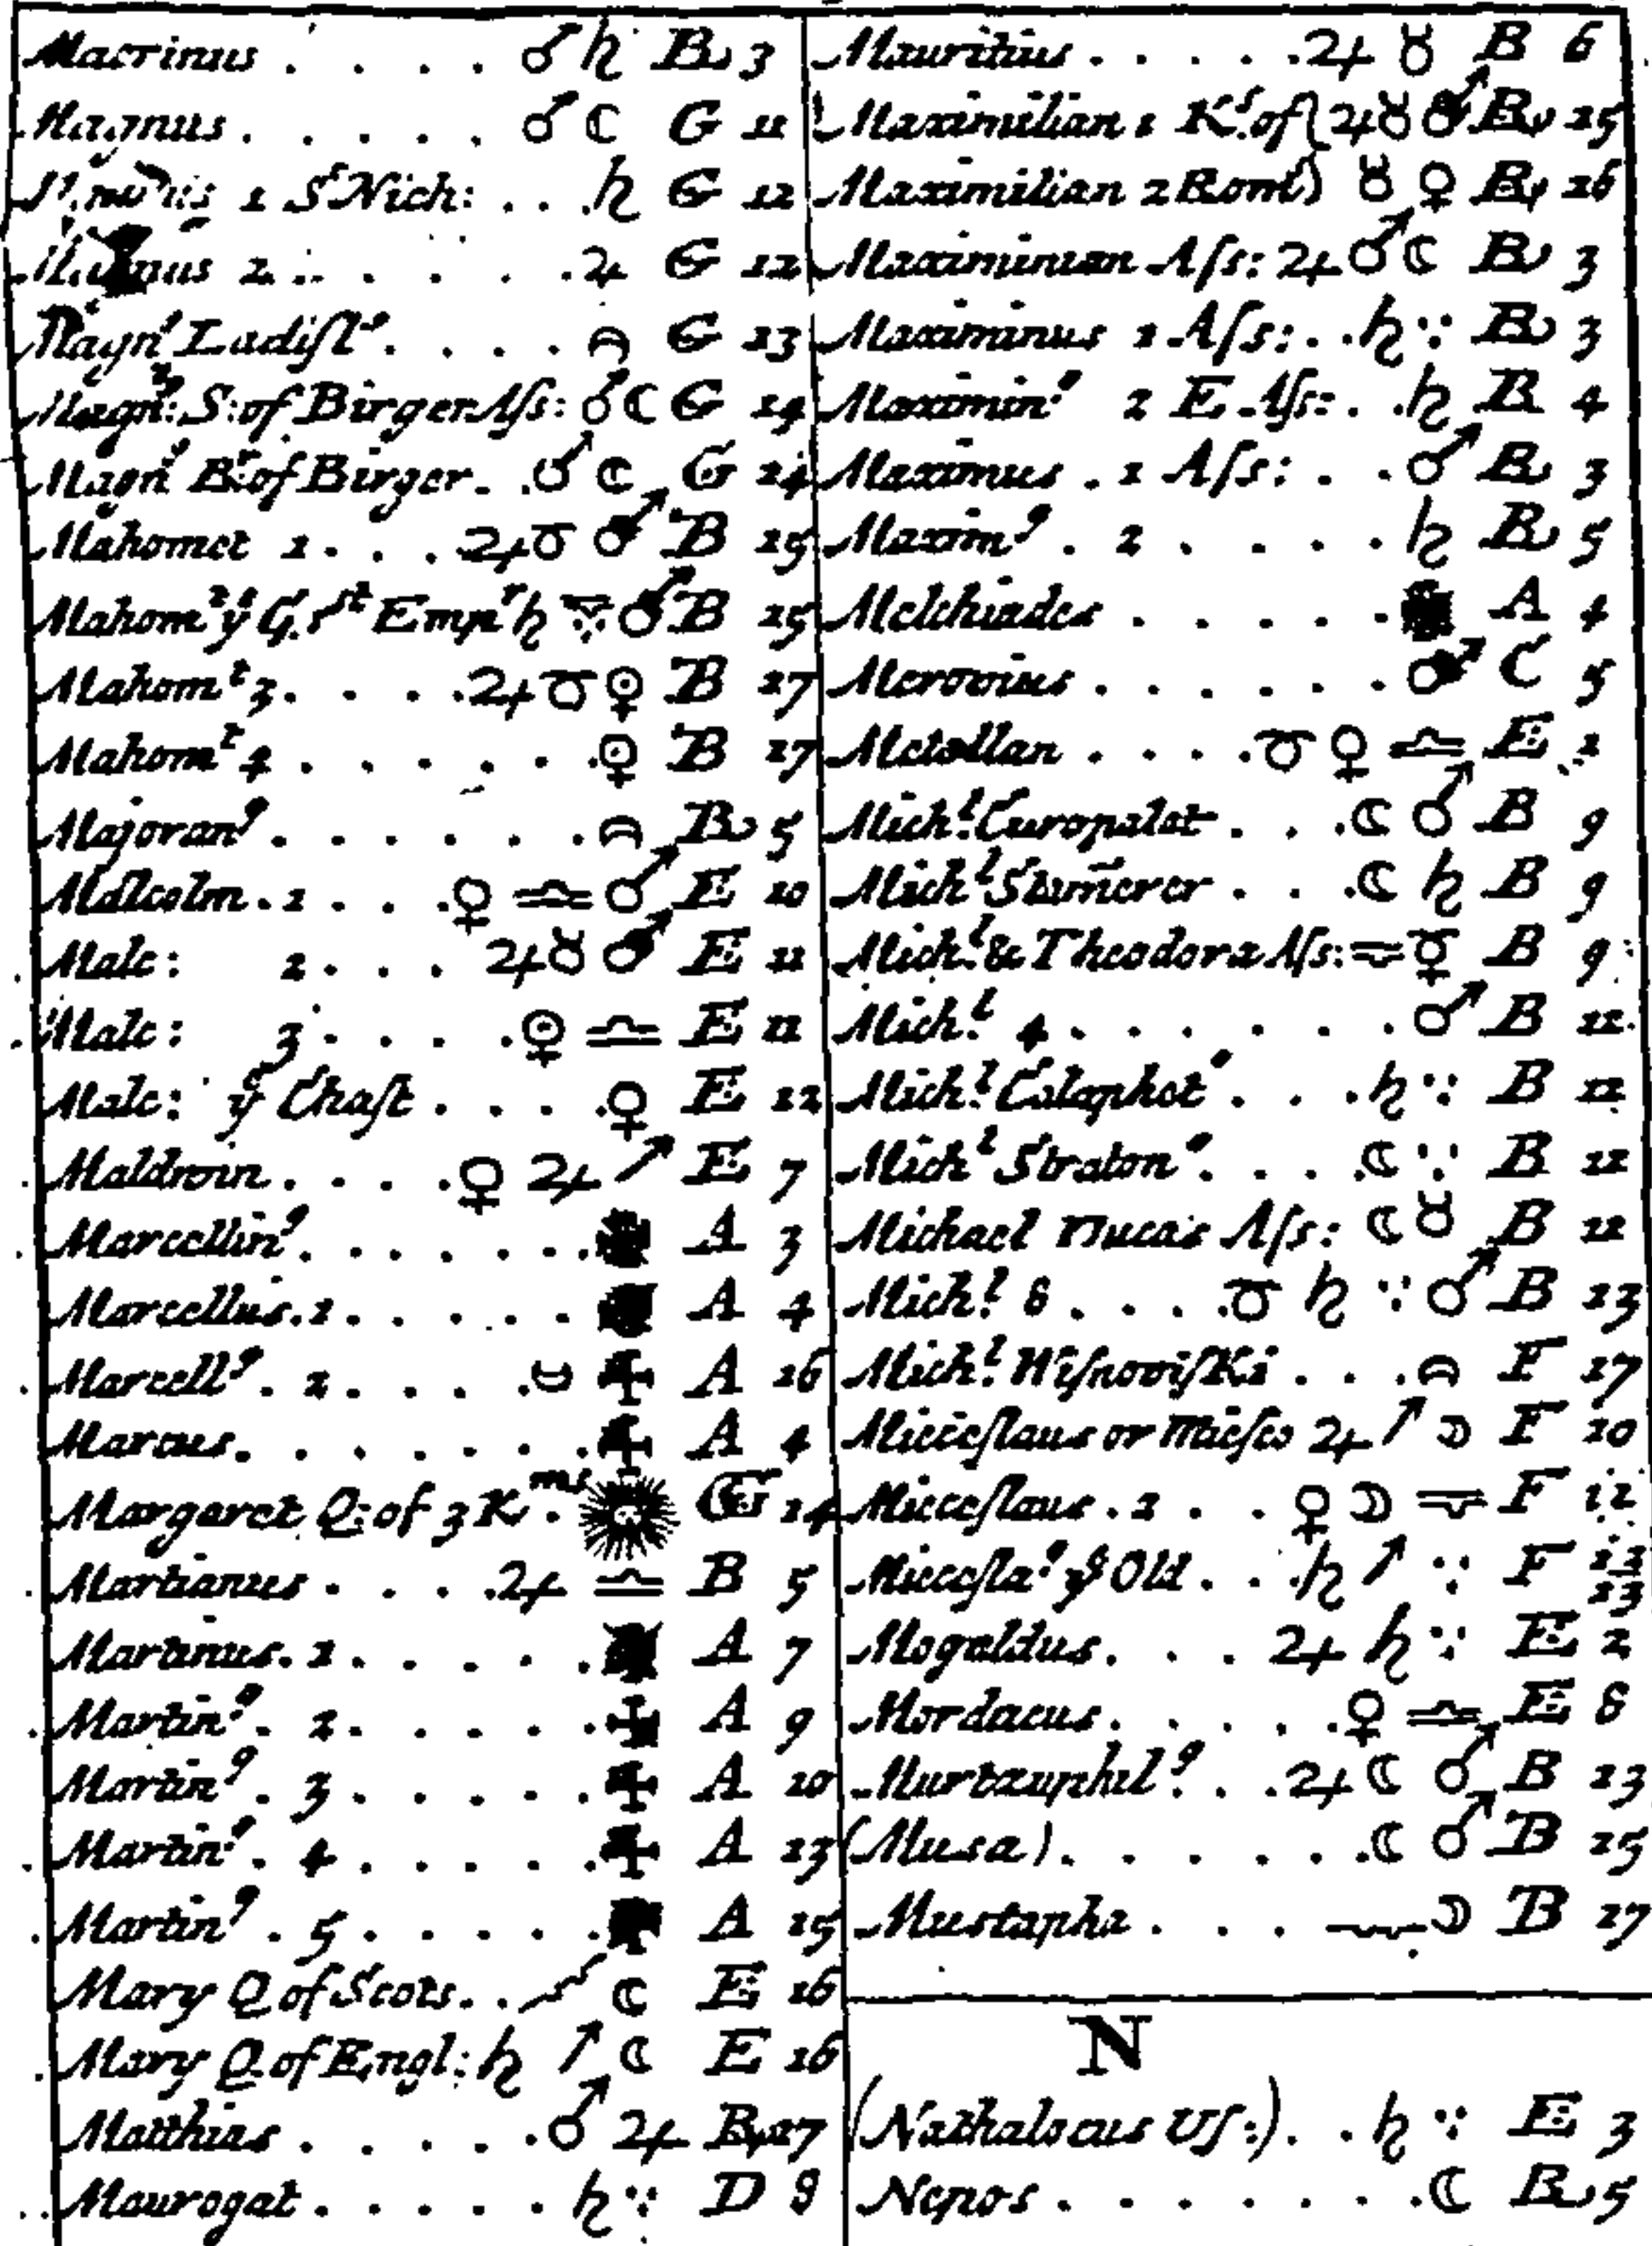 Macrinus . . . . ♂ ♄ B 3
Magnus . . . . . ♂ ☾ G 11
1 St Nich: . . . ♄ G 12
2 . . . . . . ♃ G 12
Magn⁹ Ladisl⁹ . . . . G 13
Magn⁹: S: of Birger Aſs: ♂ ☾ G 14
Magn⁹ Br: of Birger . . ♂ ☾ G 14
Mahomet 1 . . . ♃ ♉ ♂ B 15
Mahomt 2 ye G. 1st Empr ♄ ♂ B 15
Mahomt 3 . . . . ♃ ♉ B 17
Mahomt 4 . . . . . . B 17
Majoran⁹ . . . . . . B 5
Malcolm . 1 . . . ♀ ♎ ♂ E 10
Malc: 2 . . . ♃ ♉ ♂ E 11
Malc: 3 . . . . ♎ E 11
Malc: ye Chaſt . . . . ♀ E 12
Maldwin . . . . ♀ ♃ ↗ E 7
Marcellin⁹ . . . . . . . A 3
Marcellus . 1 . . . . . . A 4
Marcell⁹ . 2 . . . . ✠ A 16
Marcus . . . . . . . ✠ A 4
Margaret Q: of 3 Kms . G 14
Martianus . . . . ♃ ♎ B 5
Martinus . 1 . . . . . A 7
Martin⁹ . 2 . . . . . ✠ A 9
Martin⁹ . 3 . . . . . ✠ A 10
Martin⁹ . 4 . . . . . ✠ A 13
Martin⁹ . 5 . . . . . A 15
Mary Q of Scots . . ☾ E 16
Mary Q of Engl: ♄ ↗ ☾ E 16
Matthias . . . . . ♂ ♃ B 17
Maurogat . . . . . ♄ ∵ D 8
Mauritius . . . . . ♃ ♉ B 6
Maximilian 1 Ks. of { ♃ ♉ ♂ B 15
Maximilian 2 Roms) ♉ ♀ B 16
Maximinian Aſs: ♃ ♂ ☾ B 3
Maximinus 1 Aſs: . . ♄ ∵ B 3
Maximin⁹ 2 E Aſs: . . ♄ B 4
Maximus . 1 Aſs: . . ♂ B 3
Maxim⁹ . 2 . . . . . ♄ B 5
Melchiades . . . . . . A 4
Merovius . . . . . . . ♂ C 5
Metellan . . . . ♉ ♀ ♎ E 1
Michl. Curopalat . . . ☾ ♂ B 9
Michl Stam̄erer . . . ☾ ♄ B 9
Michl. & Theodora Aſs: B 9
Michl. 4 . . . . . . . ♂ B 11
Michl. Calaphat⁹ . . . ♄ ∵ B 11
Michl Straton⁹ . . . ☾ ∵ B 11
Michael Ducas Aſs: ☾ ♉ B 11
Michl. 8 . . . . ♉ ♄ ∵ ♂ B 13
Michl. Wiſnoviſki . . . F 17
Miecieſlaus or Mieſco ♃ ↗ ☽ F 10
Mieceſlaus . 2 . . . ♀ ☽ F 12
Mieceſla⁹ ye Old . . . ♄ ↗ ∵ F 12 13
Mogaldus . . . ♃ ♄ ∵ E 2
Mordacus . . . . . ♀ ♎ E 8
Murtzuphil⁹ . . . ♃ ☾ ♂ B 13
(Musa) . . . . . . . ☾ ♂ B 15
Mustapha . . . ☽ B 17
N
(Nathalocus Uſ:) . . ♄ ∵ E 3
Nepos . . . . . . . . ☾ B 5